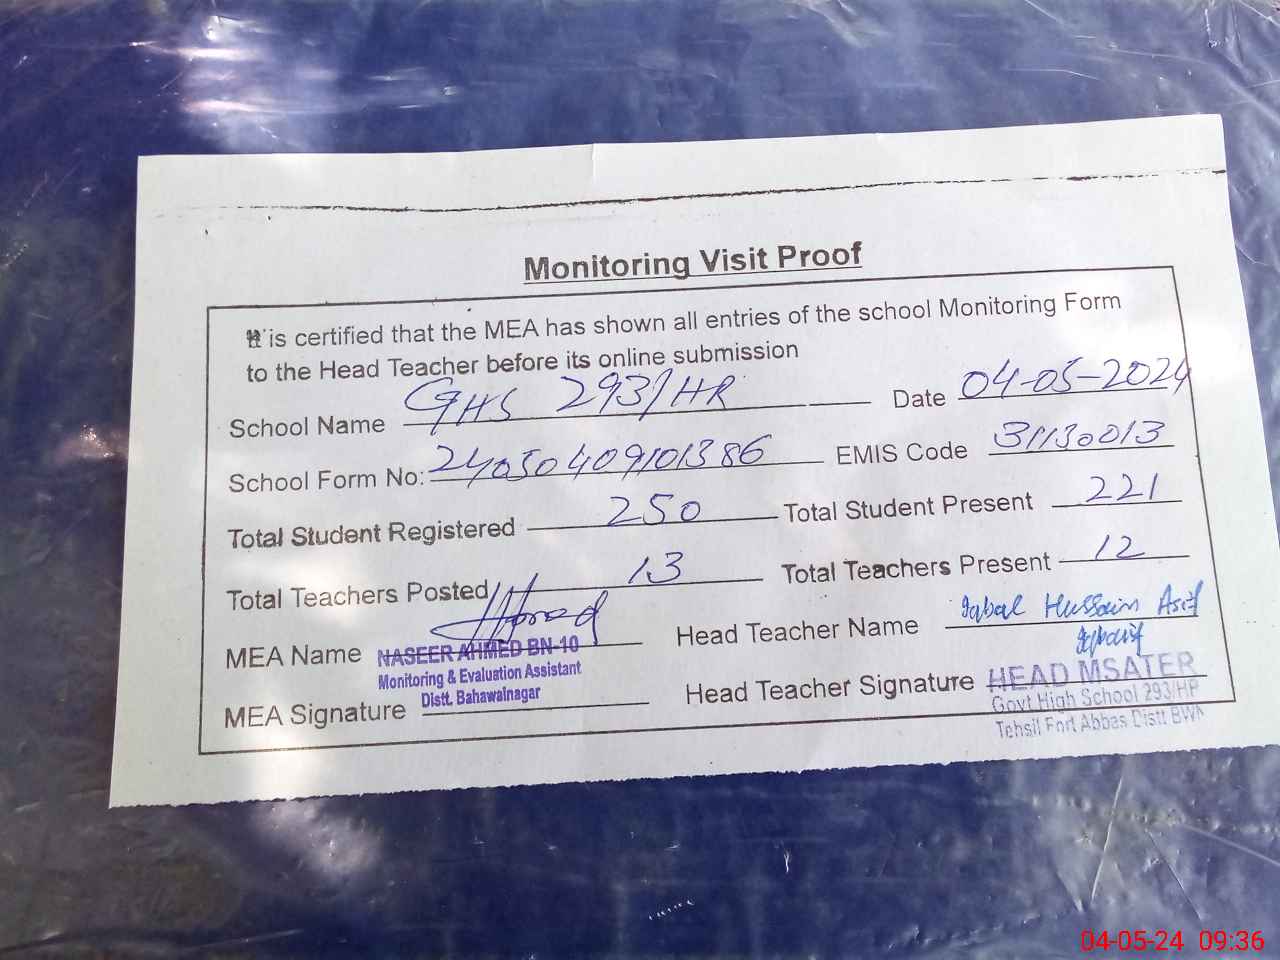 Monitoring Visit Proof
It is certified that the MEA has shown all entries of the school Monitoring Form
to the Head Teacher before its online submission
School Name GHS 293/HR Date 04-05-2024
School Form No: 24050409101386 EMIS Code 31130013
Total Student Registered 250 Total Student Present 221
Total Teachers Posted 13 Total Teachers Present 12
MEA Name Head Teacher Name Iqbal Hussain Asif
NASEER AHMED BN-10
Monitoring & Evaluation Assistant
Distt. Bahawalnagar
MEA Signature Head Teacher Signature
HEAD MSATER
Govt High School 293/HP
Tehsil Fort Abbas Distt BWN
04-05-24 09:36